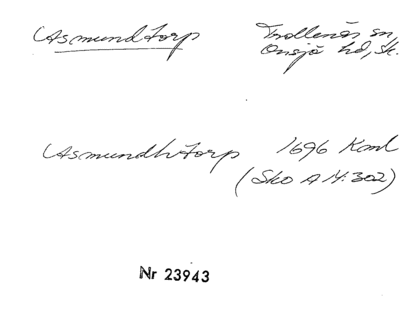 Asmundtorp Trollenäs sn,
Onsjö hd, Sk.
Asmundhtorp 1696 Kaml
(Sko A M: 302)
Nr 23943